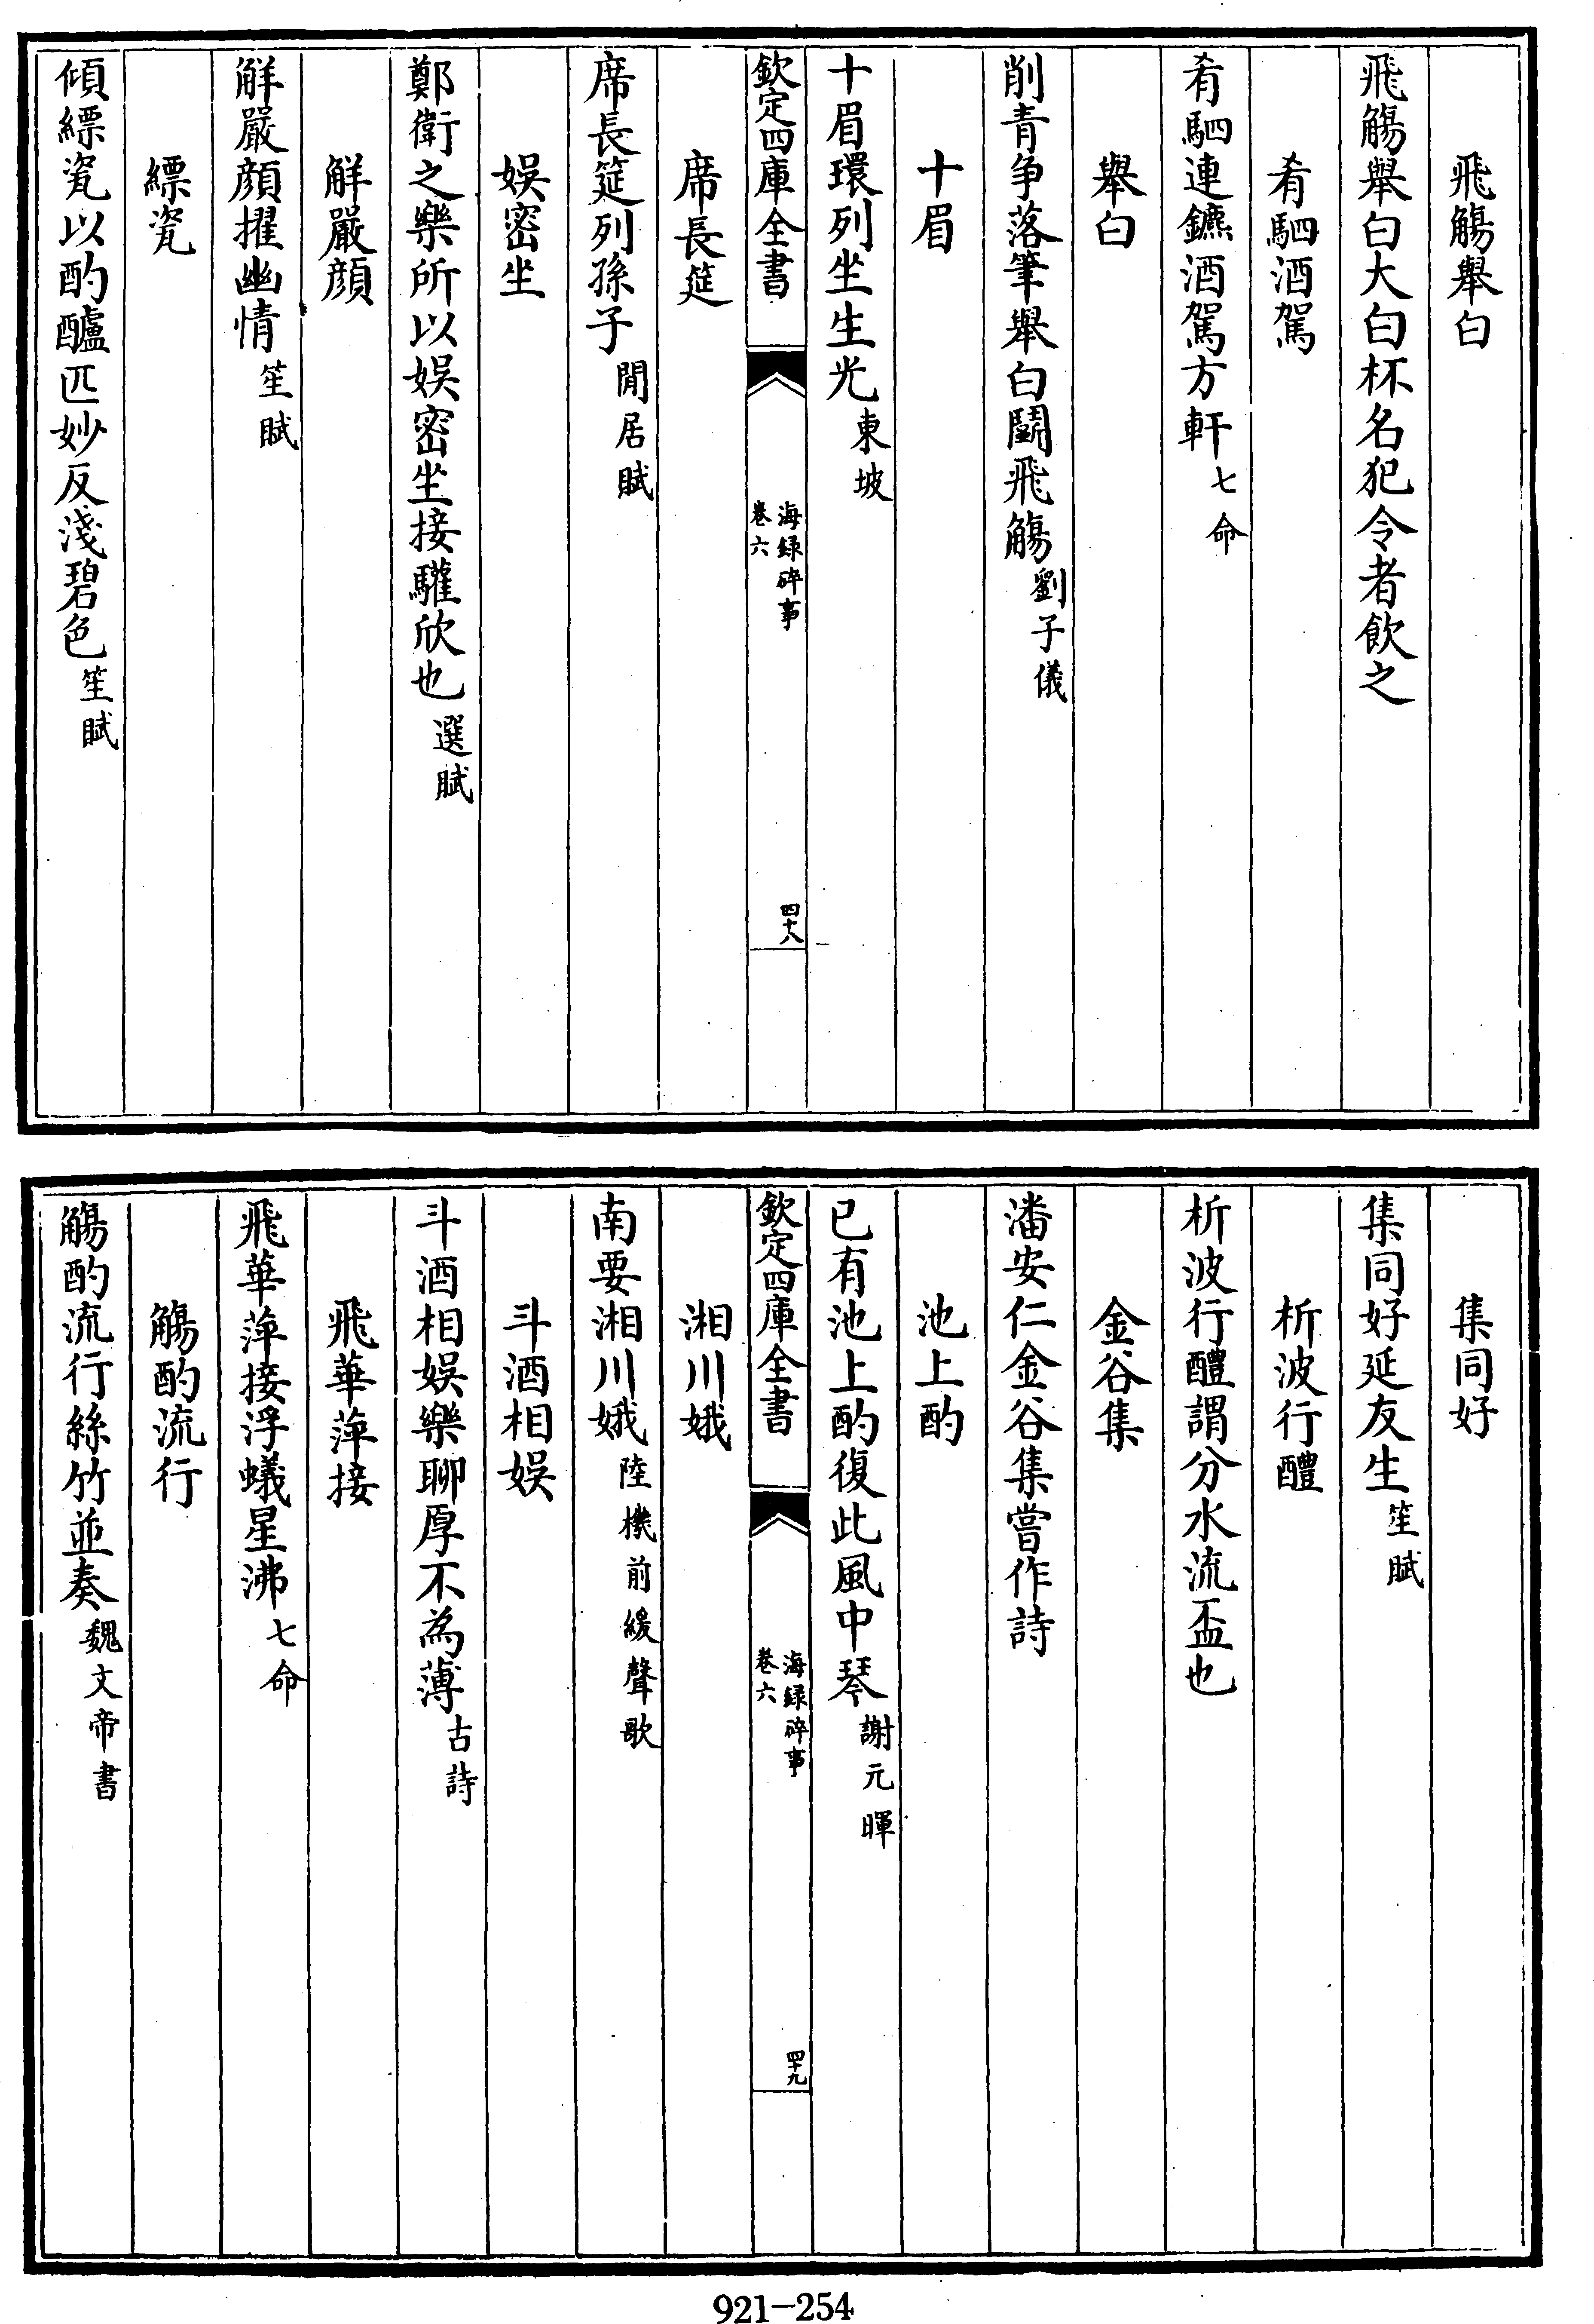 飛觴舉白
飛觴舉白大白杯名犯令者飲之
肴駟酒駕
肴駟連鑣酒駕方軒七命
舉白
削青争落筆舉白鬭飛觴劉子儀
十眉
十眉環列坐生光東坡
欽定四庫全書
海録碎事
卷六
四十八
席長筵
席長筵列孫子閒居賦
娛密坐
鄭衛之樂所以娛密坐接驩欣也選賦
觧嚴顔
觧嚴顔擢幽情笙賦
縹瓷
傾縹瓷以酌醽匹妙反淺碧色笙賦
集同好
集同好延友生笙賦
析波行醴
析波行醴謂分水流盃也
金谷集
潘安仁金谷集嘗作詩
池上酌
已有池上酌復此風中琴謝元暉
欽定四庫全書
海録碎事
卷六
四十九
湘川娥
南要湘川娥陸機前緩聲歌
斗酒相娛
斗酒相娛樂聊厚不為薄古詩
飛華蓱接
飛華蓱接浮蟻星沸七命
觴酌流行
觴酌流行絲竹並奏魏文帝書
921-254